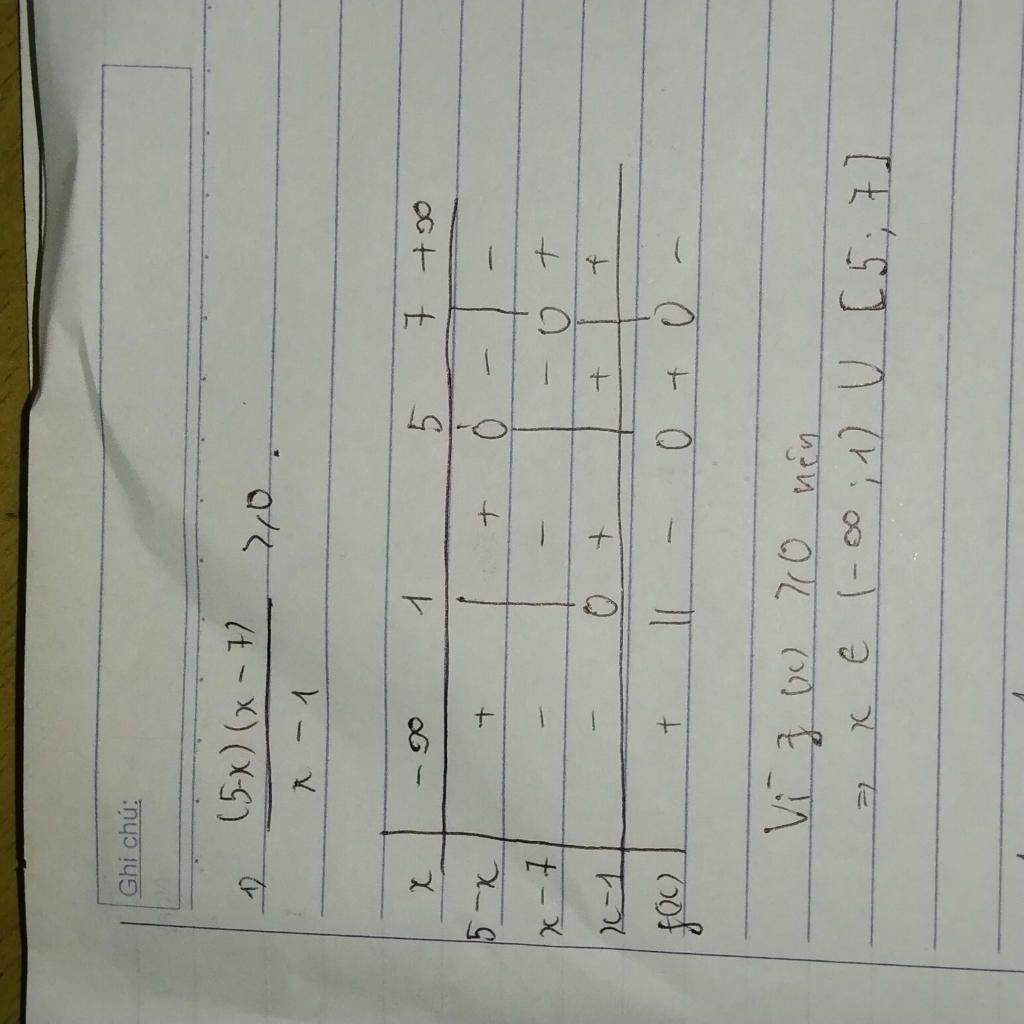 Ghi chú:
1) (5-x)(x-7) / x-1 ≥ 0.
x -∞ 1 5 7 +∞
5-x + | + 0 - | -
x-7 - | - | - 0 +
x-1 - 0 + | + | +
f(x) + || - 0 + 0 -
Vì f(x) ≥ 0 nên
=> x ∈ (-∞; 1) U [5; 7]